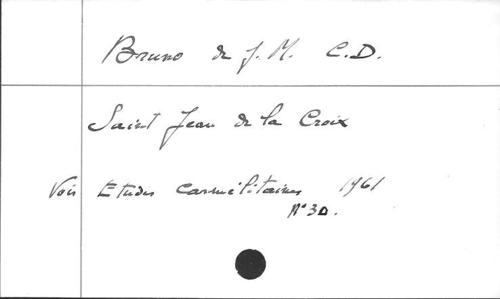 Bruno de J. M. C.D.
Saint Jean de la Croix
Voir Etudes Carmélitaines 1961
N° 30.